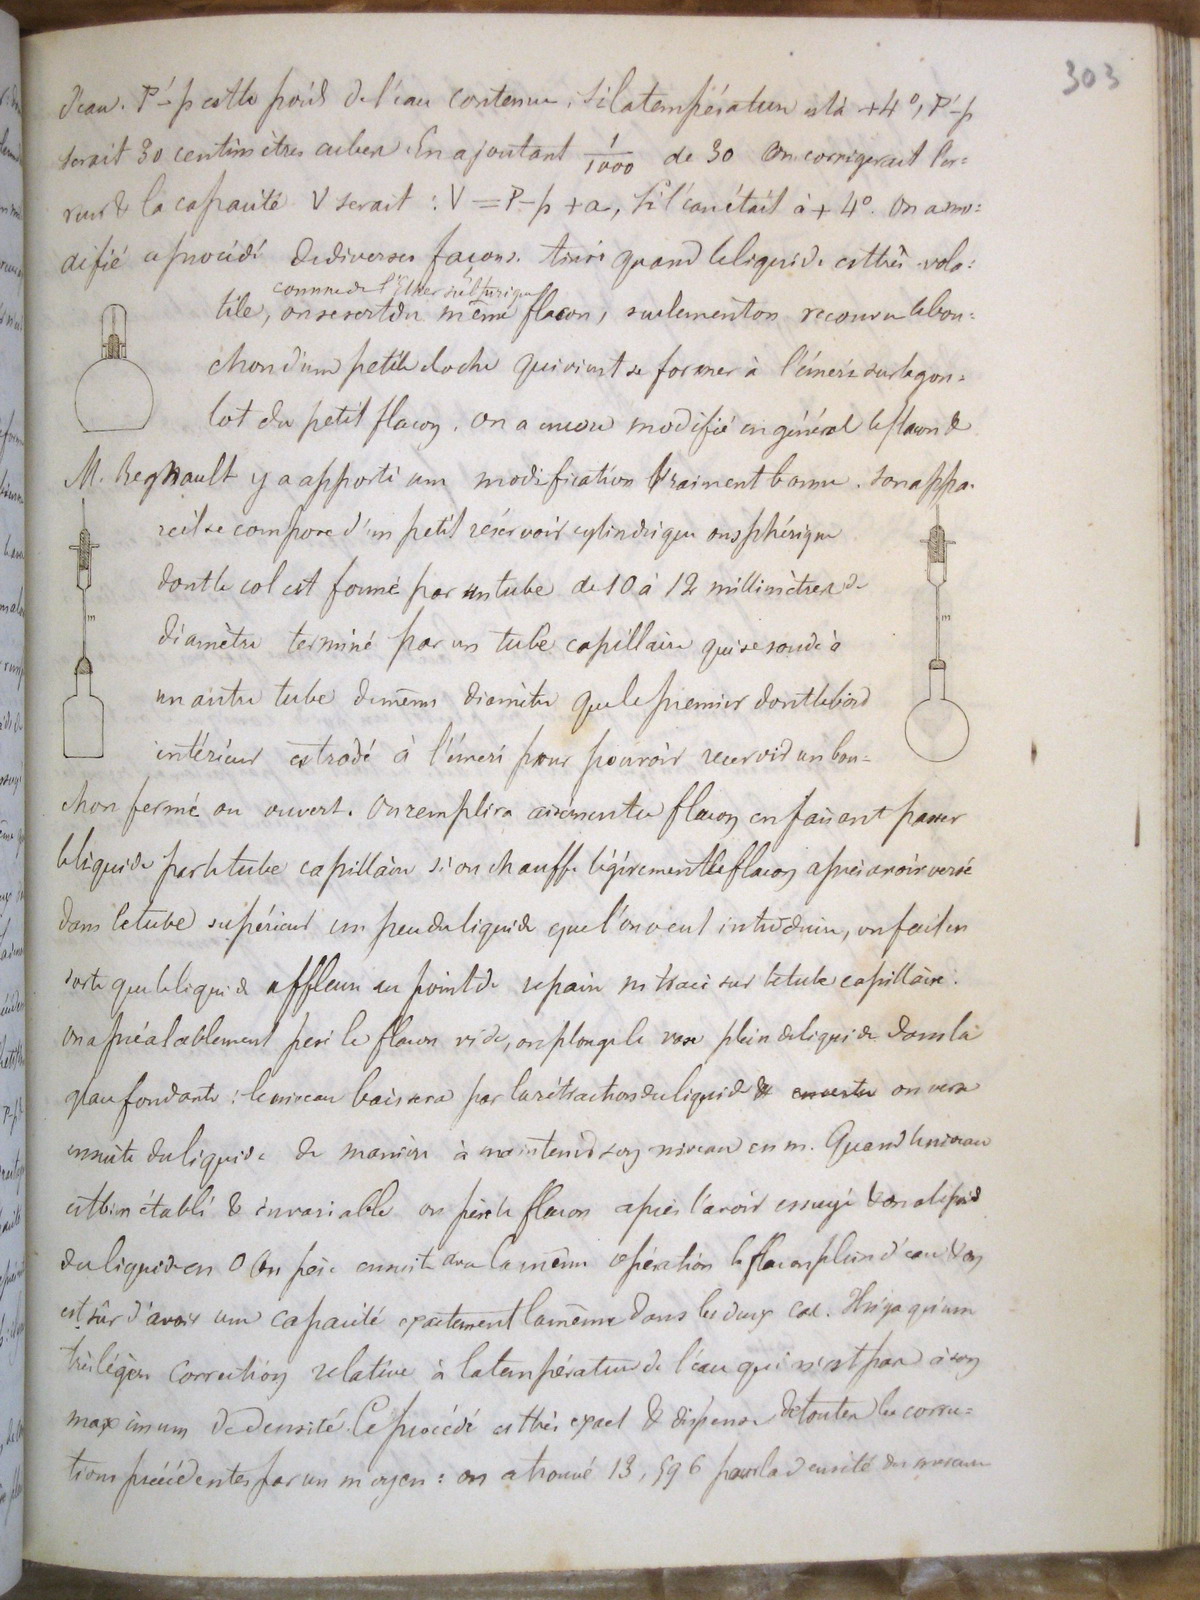 303
d'eau. P'-p est le poids de l'eau contenue, si la température est à +4°, P'-p
serait 30 centimètres cubes. En ajoutant 1/1000 de 30 on corrigerait l'er-
reur & la capacité V serait : V = P-p + a, si l'eau était à + 4°. On a mo-
difié ce procédé de diverses façons. Ainsi quand le liquide est très vola-
comme de l'Ether sulfurique
tile, on se sert du même flacon, seulement on recouvre le bou-
chon d'une petite cloche qui vient se fermer à l'émeri sur le gou-
lot du petit flacon. On a encore modifié en général le flacon &
M. Regnault y a apporté une modification vraiment bonne. Son appa-
reil se compose d'un petit réservoir cylindrique ou sphérique
dont le col est formé par un tube de 10 à 12 millimètres de
diamètre terminé par un tube capillaire qui se soude à
un autre tube de même diamètre que le premier dont le bord
intérieur est rodé à l'émeri pour pouvoir recevoir un bou-
chon fermé ou ouvert. On remplira aisément ce flacon en faisant passer
le liquide par le tube capillaire si on chauffe légèrement le flacon après avoir versé
dans le tube supérieur un peu du liquide que l'on veut introduire, on fait en
sorte que le liquide affleure au point de repaire m tracé sur le tube capillaire.
on a préalablement pesé le flacon vide, on plonge le vase plein de liquide dans la
glace fondante : le niveau baissera par la rétraction du liquide & on verse
ensuite du liquide de manière à maintenir son niveau en m. Quand le niveau
est bien établi & invariable on pèse le flacon après l'avoir essuyé & on a le poids
du liquide en 0 On pèse ensuite avec la même opération le flacon plein d'eau & on
est sûr d'avoir une capacité exactement la même dans les deux cas. Il n'y a qu'une
très légère correction relative à la température de l'eau qui n'est pas à son
maximum de densité. Ce procédé est très exact & dispense de toutes les correc-
tions précédentes par un moyen : on a trouvé 13,596 pour la densité du mercure
m
m